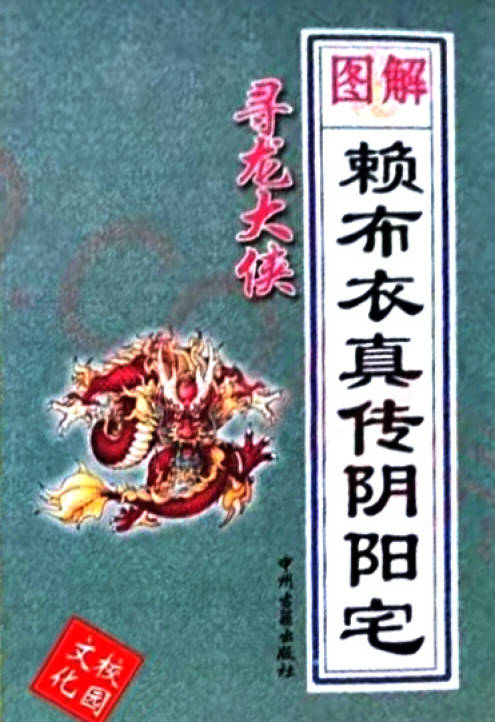 图解
赖布衣真传阴阳宅
寻龙大侠
中州古籍出版社
校园
文化